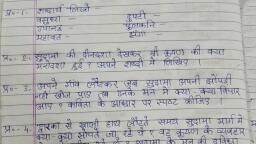 प्र०-1. शब्दार्थ लिखो -
वसुधा - दुपटी -
उपानह - पुलकनि -
महावत - झँगा -
प्र०-2. सुदामा की दीनदशा देखकर श्री कृष्ण की क्या
मनोदशा हुई ? अपने शब्दों में लिखिए ।
प्र०-3. अपने गाँव लौटकर जब सुदामा अपनी झोंपड़ी
नहीं खोज पाए तब उनके मन में क्या-क्या विचार
आए ? कविता के आधार पर स्पष्ट कीजिए ।
प्र०-4. द्वारका से खाली हाथ लौटते समय सुदामा मार्ग में
क्या-क्या सोचते जा रहे थे ? वह कृष्ण के व्यवहार